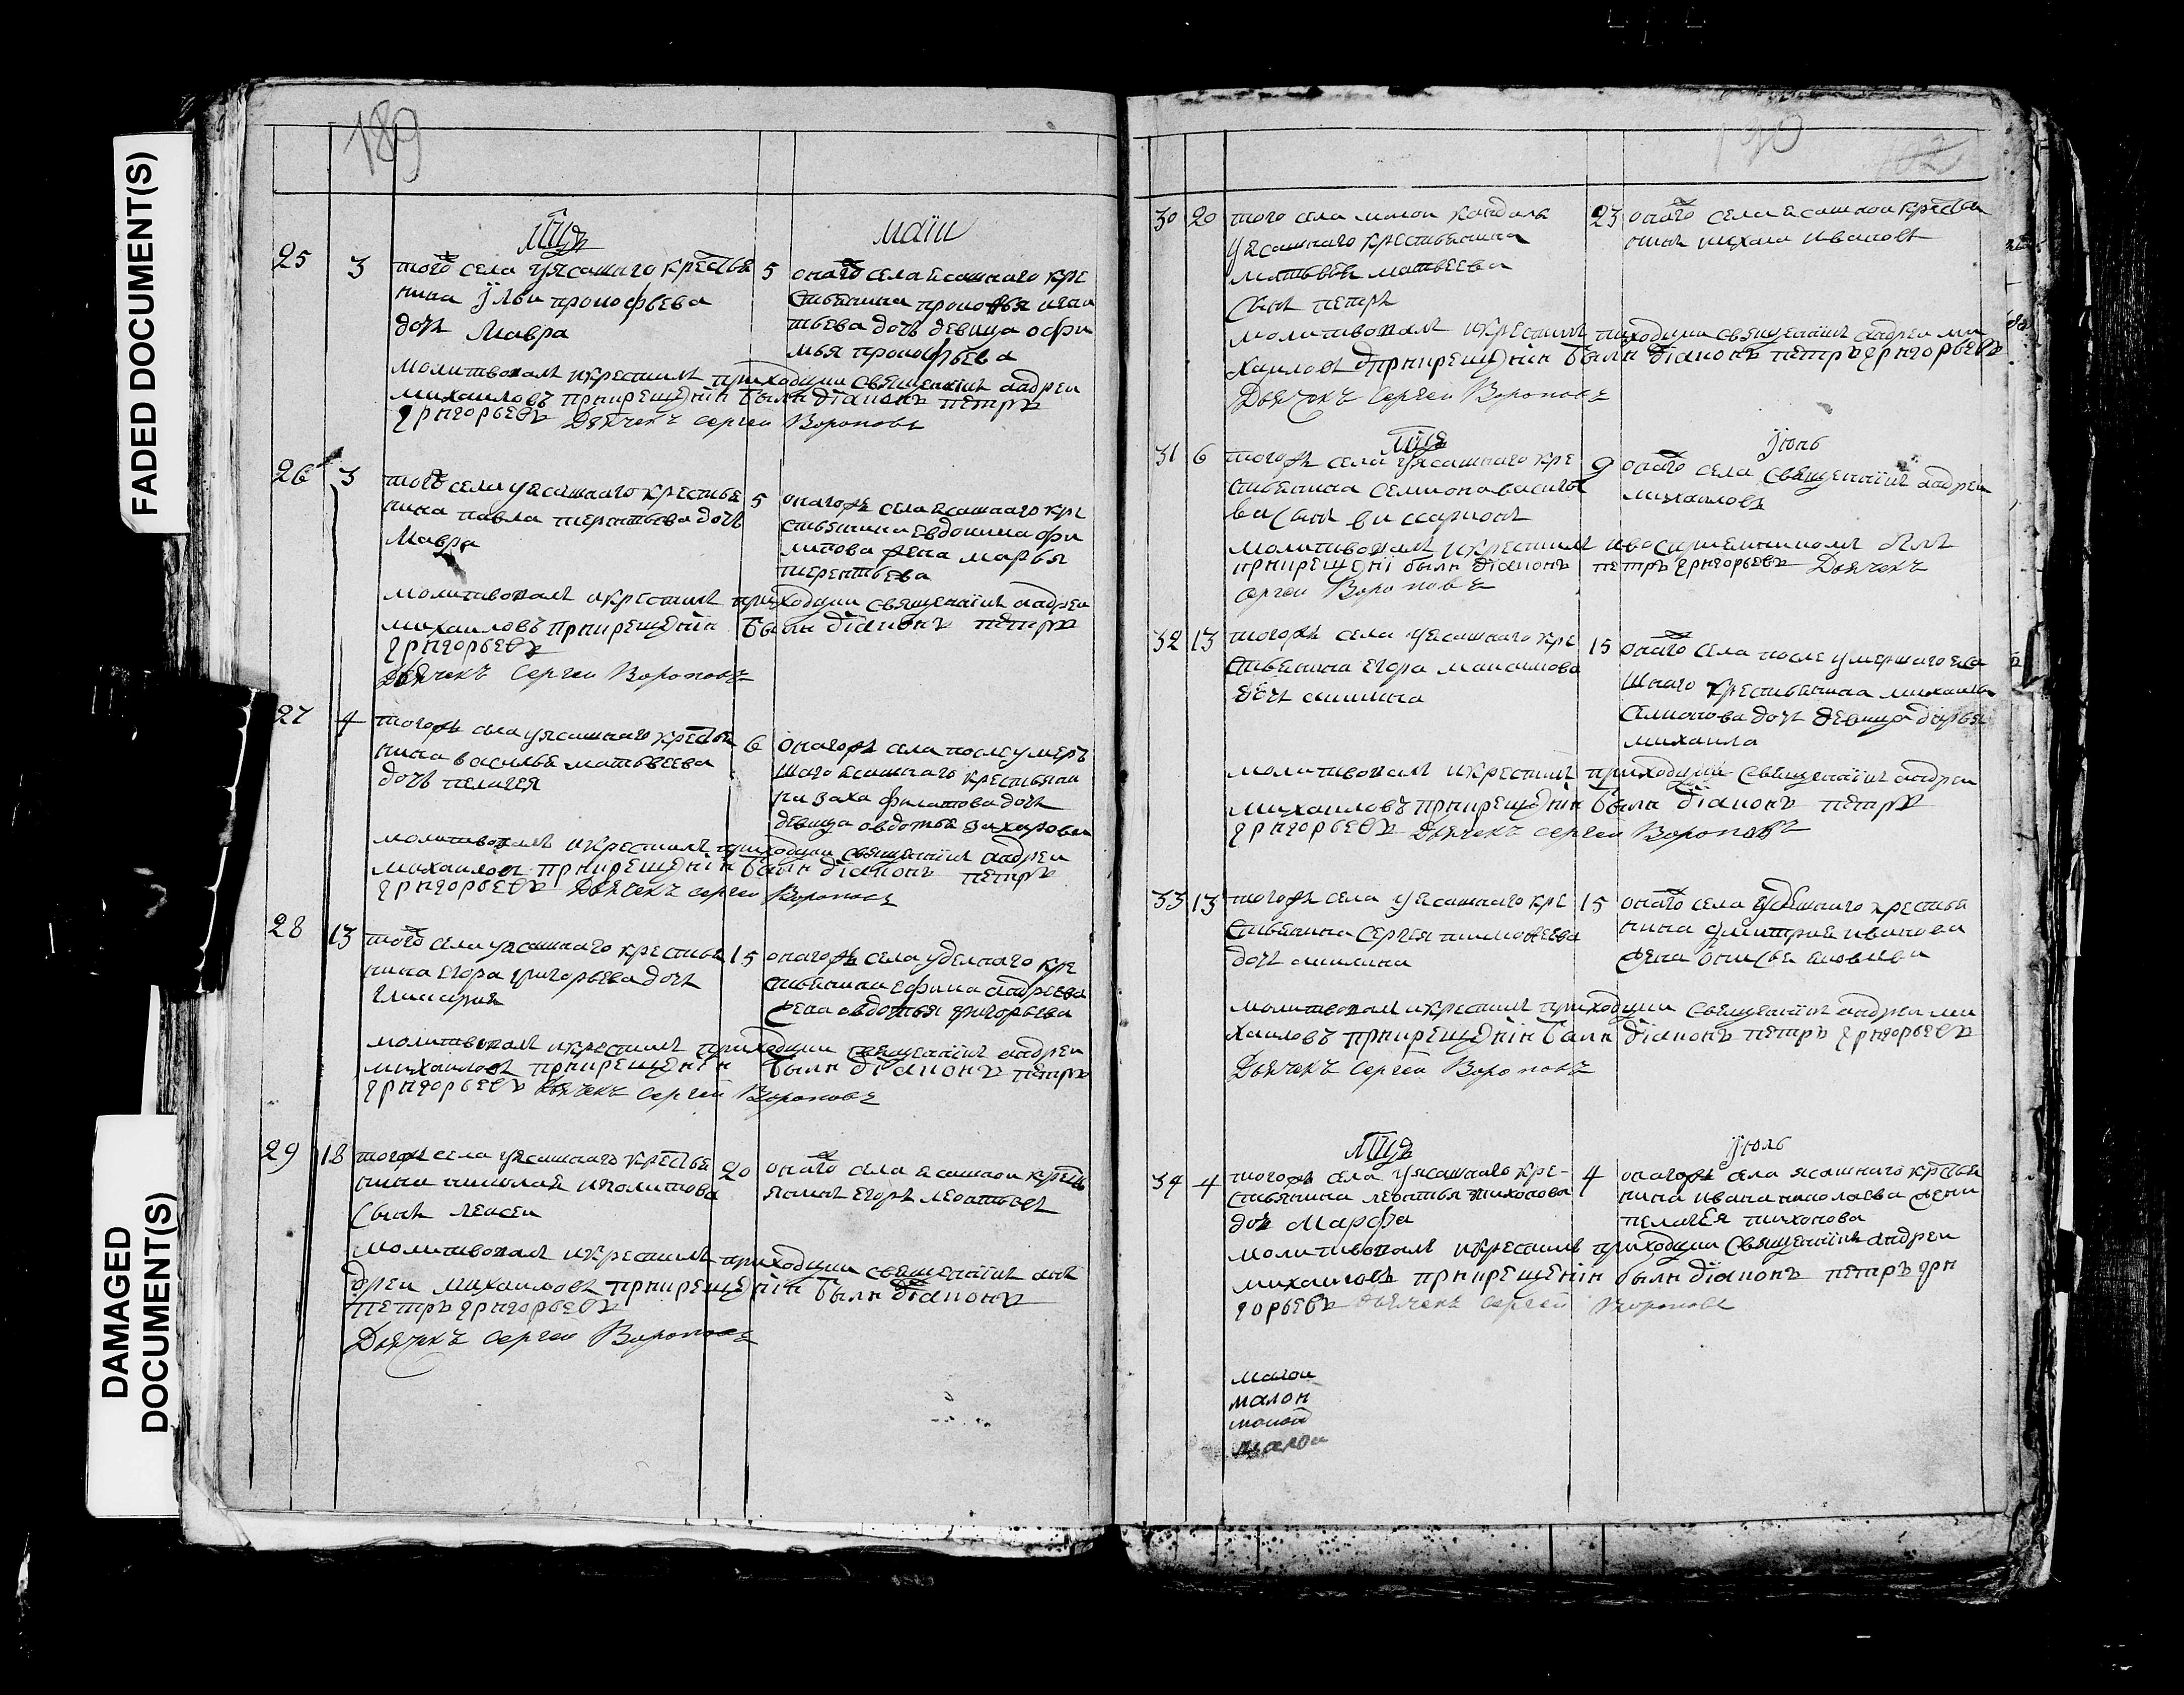 FADED DOCUMENT(S)
DAMAGED
DOCUMENT(S)
189
Мцъ маiи
25 3 того села у ясашнаго крестья
нина Ильи прокофьева
дочь Мавра
5 онаго села ясашнаго кре
стьянина прокофья игна
тьева дочь девица офи
мья прокофьева
молитвовалъ и крестилъ приходцки священникъ андреи
михаиловъ при крещенiи были дiаконъ петръ
григорьевъ Дьячекъ сергеи Вороновъ
26 3 того села у ясашнаго крестья
нина павла терентьева дочь
Мавра
5 онагожъ села ясашнаго кре
стьянина Евдокима фи
липова жена марья
терентьева
молитвовалъ и крестилъ приходцки священникъ андреи
михаиловъ при крещенiи были дiаконъ петръ
григорьевъ
Дьячекъ Сергеи Вороновъ
27 4 тогожъ села у ясашнаго крестья
нина василья матвеева
дочь пелагея
6 онагожъ села после умер
шаго ясашнаго крестьяни
на заха филатова дочь
девица овдотья захарова
молитвовалъ и крестилъ приходцки священникъ андреи
михаиловъ при крещенiи были дiаконъ петръ
григорьевъ Дьячекъ сергеи Вороновъ
28 13 того села у ясашнаго крестья
нина егора григорьева дочь
гликерия
15 онагожъ села уделнаго кре
стьянина ефима андреева
жена авдотья григорьева
молитвовалъ и крестилъ приходцки священникъ андреи
михаиловъ при крещенiи были дiаконъ петръ
григорьевъ Дьячекъ Сергеи Вороновъ
29 18 тогожъ села у ясашнаго крестья
нина николая иполитова
Сынъ Лексеи
20 онаго села ясашнои крестья
янинъ егоръ леонтьевъ
молитвовалъ и крестилъ приходцки священникъ ан
дреи михаиловъ при крещенiи были дiаконъ
петръ григорьевъ
Дьячекъ Сергеи Вороновъ
190
102
30 20 того села малои кандалы
у ясашнаго крестьянина
матвея матвеева
Сынъ петръ
23 онаго села ясашнои крестья
нинъ михаила ивановъ
молитвовалъ и крестилъ приходцки священникъ андреи ми
хаиловъ при крещенiи были дiаконъ петръ григорьевъ
Дьячекъ Сергеи Вороновъ
Мцъ Iюнь
31 6 тогожъ села у ясашнаго кре
стьянина семиона василье
ва Сынъ виссарионъ
9 онаго села священникъ андреи
михаиловъ
молитвовалъ и крестилъ и восприемникомъ былъ
при крещенi были дiаконъ петръ григорьевъ Дьячекъ
сергеи Вороновъ
32 13 тогожъ села у ясашнаго кре
стьянина Егора максимова
дочь акилина
15 онаго села после умершаго яса
шнаго крестьянина михаила
Семионова дочь девица дарья
михаила
молитвовалъ и крестилъ приходцки священникъ андреи
михаиловъ при крещенiи были дiаконъ петръ
григорьевъ Дьячекъ сергеи Вороновъ
33 13 тогожъ села у ясашнаго кре
стьянина Сергея тимофеева
дочь акилина
15 онаго села крестья
нина дмитрия иванова
жена Яковлева
молитвовалъ и крестилъ приходцки священникъ андреи ми
хаиловъ при крещенiи были дiаконъ петръ григорьевъ
Дьячекъ Сергеи Вороновъ
Мцъ Iюль
34 4 тогожъ села у ясашнаго кре-
стьянина леонтья тихонова
дочь Марфа
4 онагожъ села ясашнаго крестья
нина ивана николаева жена
пелагея тихонова
молитвовалъ и крестилъ приходцки священникъ андреи
михаиловъ при крещенiи были дiаконъ петръ гри
горьевъ дьячекъ Сергеи Вороновъ
малои
малои
малои